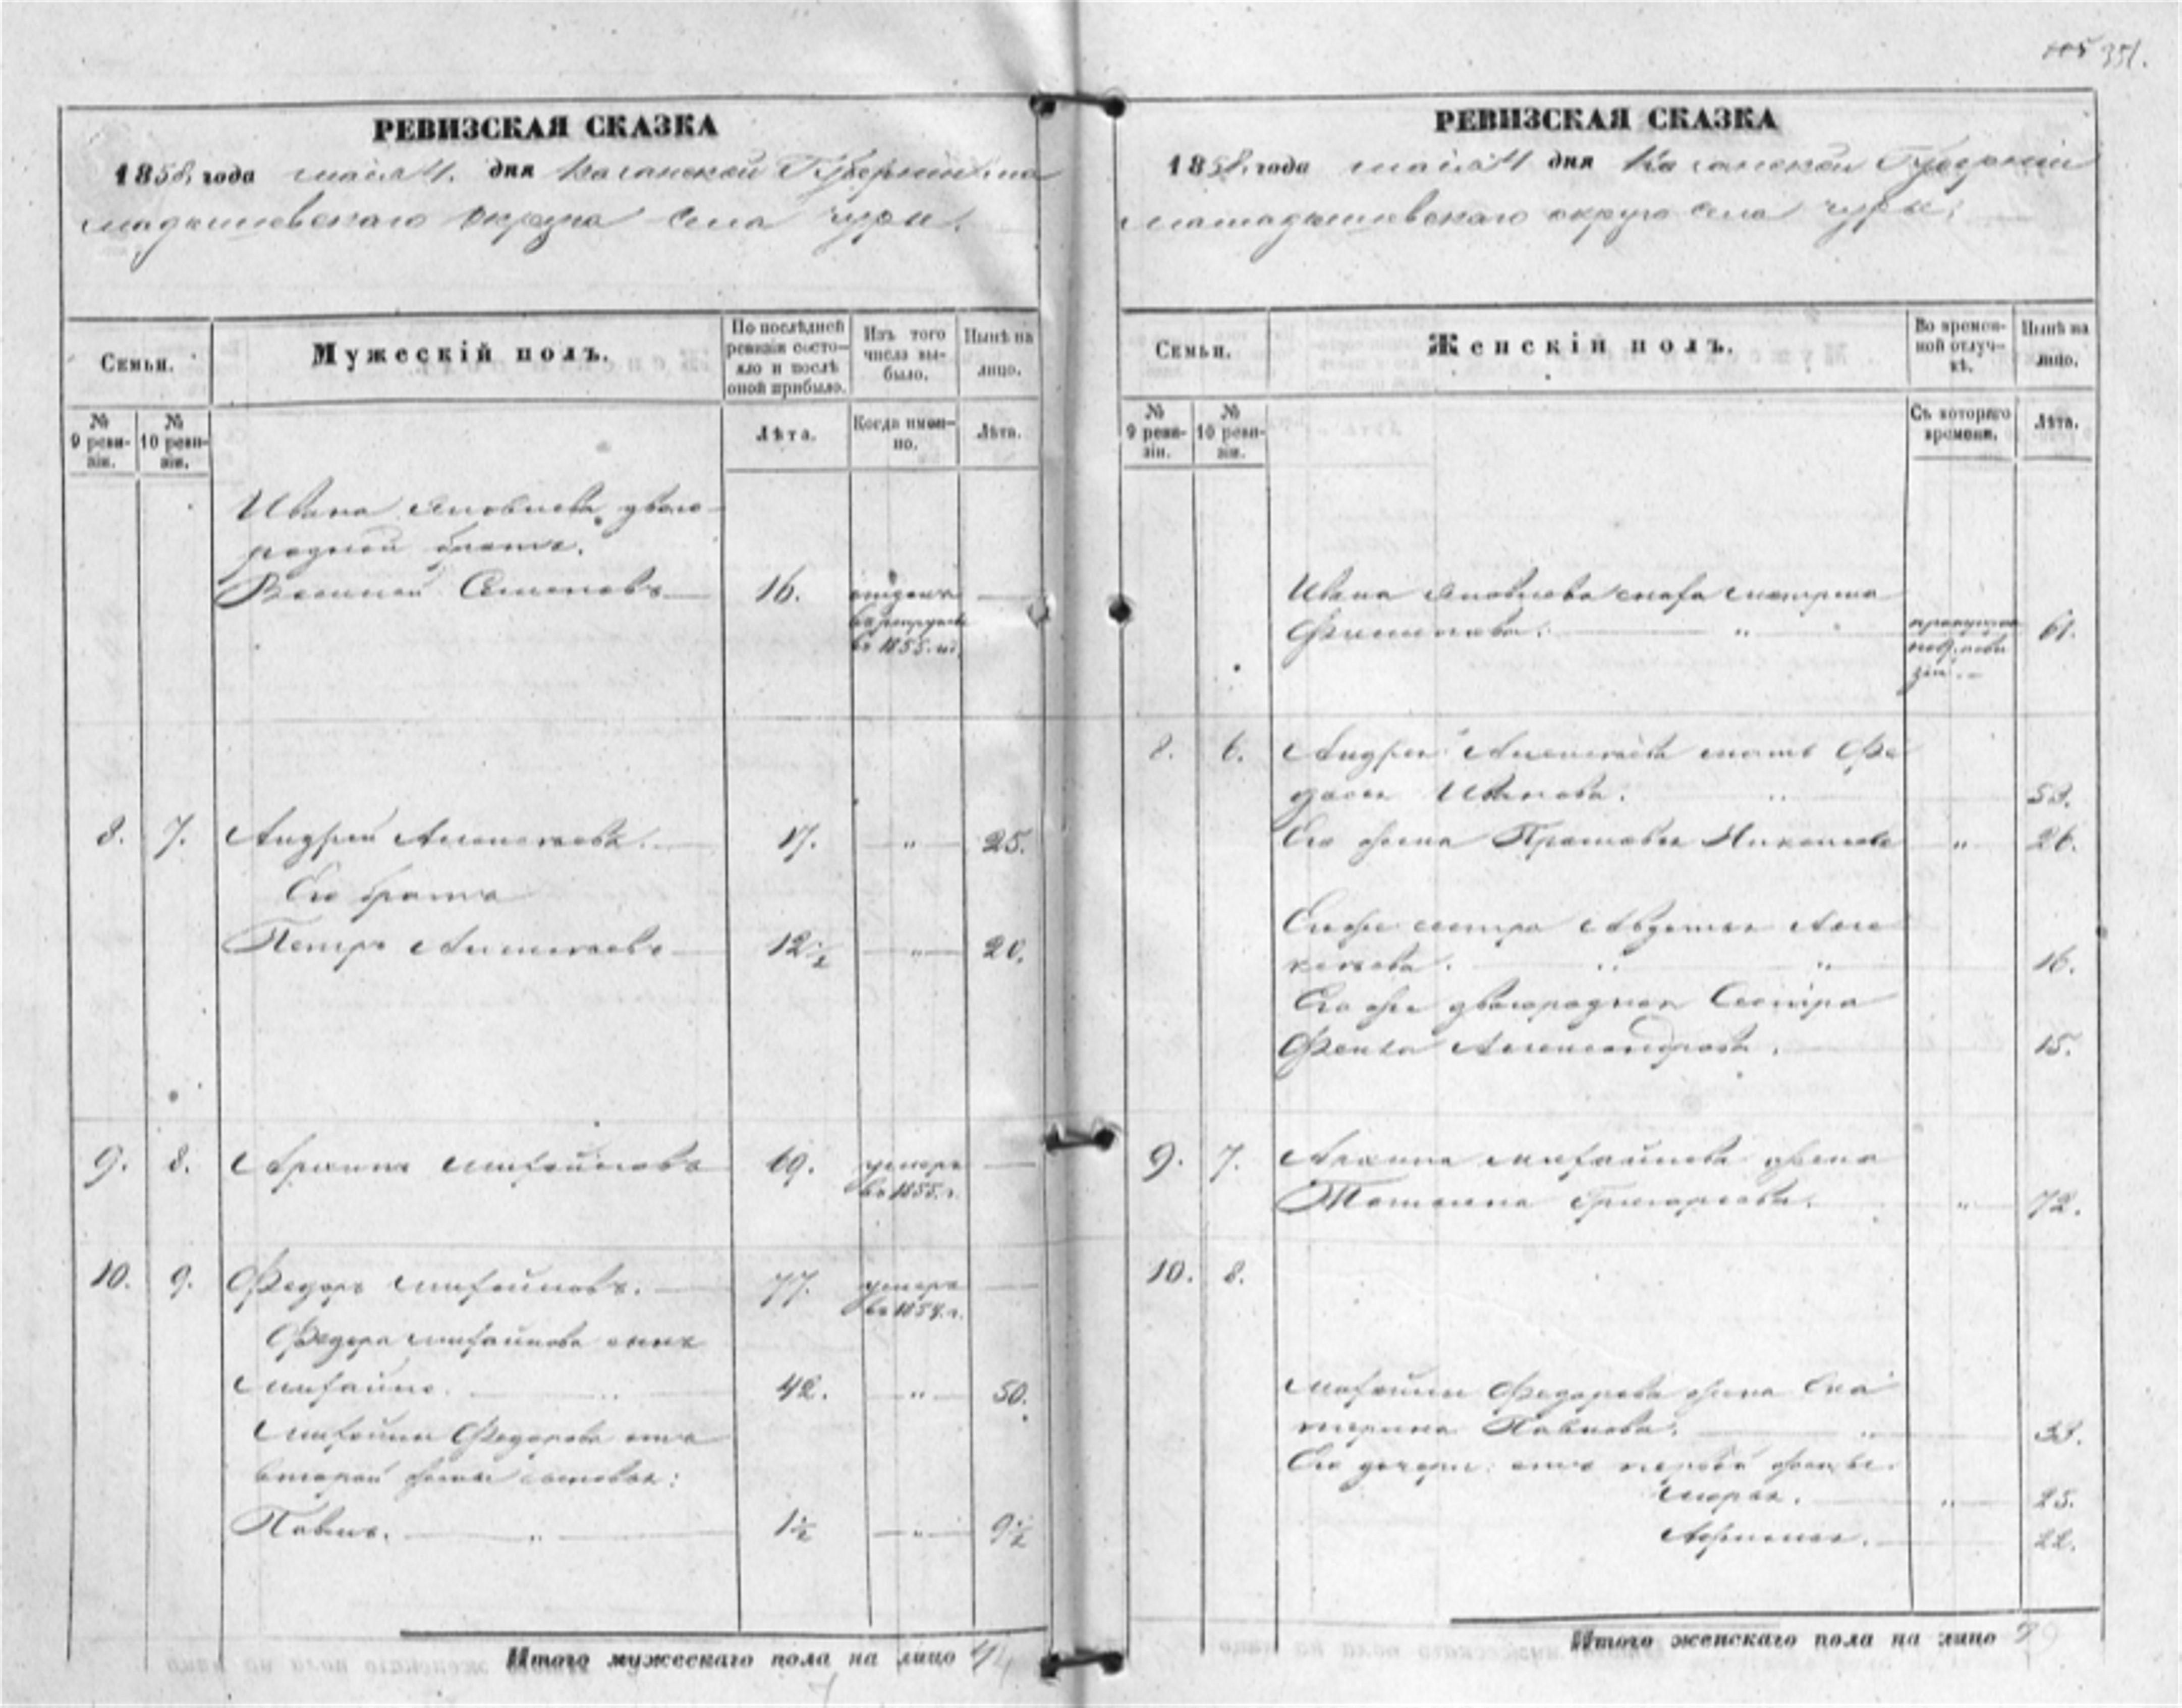 351.
РЕВИЗСКАЯ СКАЗКА
1858 года мая 4. дня Казанской Губернии ма
мадышевскаго округа села чуры.
Семьи.
Мужескій полъ.
По послѣдней ревизіи состояло и послѣ оной прибыло.
Изъ того числа выбыло.
Нынѣ на лицо.
№ 9 ревизіи.
№ 10 ревизіи.
Лѣта.
Когда именно.
Лѣта.
Ивана Яковлева двою-
родной братъ.
Василей Семеновъ 16. отданъ
въ рекруты
въ 1855. г.
8. 7. Андрей Алексѣевъ. 17. " 25.
Его братъ
Петръ Алексѣевъ 12½ " 20.
9. 8. Архипъ Михайловъ 69. умеръ
въ 1855. г.
10. 9. Федоръ Михайловъ. 77. умеръ
въ 1854. г.
Федора Михайлова сынъ
Михайло. 42. " 50.
Михайлы Федорова отъ
второй жены сыновья:
Павелъ. " 1½ " 9½
Итого мужескаго пола на лицо 4
РЕВИЗСКАЯ СКАЗКА
1858. года мая 4 дня Казанской Губерніи
мамадышевскаго округа села чуры.
Семьи.
Женскій полъ.
Во временной отлучкѣ.
Нынѣ на лицо.
№ 9 ревизіи.
№ 10 ревизіи.
Съ котораго времени.
Лѣта.
Ивана Яковлева Матрена
Филипова. " 61.
8. 6. Андрея Алексѣева мать Фе
досья Иванова. " 53.
Его жена Прасковья Николаева " 26.
Его же сестра Авдотья Але
ксѣева. " " 16.
Его же двоюродная Сестра
Фекла Александрова. 15.
9. 7. Архипа Михайлова жена
Татьяна Григорьева. " 72.
10. 8.
Михайлы Федорова жена Ека
терина Павлова. " 33.
Его дочери отъ первой жены.
Марья. " 25.
Афимья. 22.
Итого женскаго пола на лицо 9